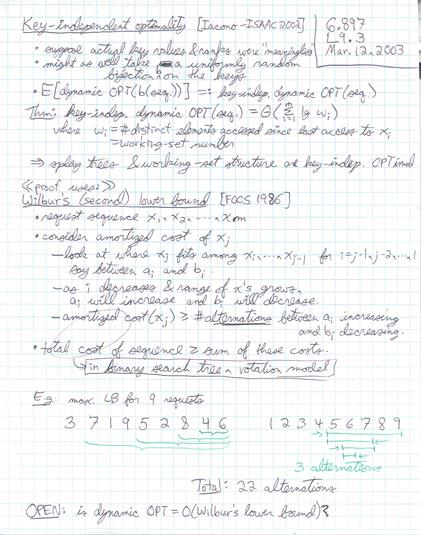 Key-independent optimality [Iacono - ISAAC 2002]
6.897
L9.3
Mar. 12, 2003
• suppose actual key values & ranks were "meaningless"
• might as well take a uniformly random
bijection b on the keys
• E[dynamic OPT(b(seq.))] =: key-indep. dynamic OPT(seq.)
Thm: key-indep. dynamic OPT(seq.) = Θ(Σ lg wᵢ)
where wᵢ = # distinct elements accessed since last access to xᵢ
= working-set number
⇒ splay trees & working-set structure are key-indep. OPTimal
≪proof uses:≫
Wilbur's (second) lower bound [FOCS 1986]
• request sequence x₁, x₂, ..., xₘ
• consider amortized cost of xⱼ
– look at where xⱼ fits among xᵢ, ..., xⱼ₋₁ for i=j-1, j-2, ..., 1
say between aᵢ and bᵢ
– as i decreases & range of x's grows,
aᵢ will increase and bᵢ will decrease.
– amortized cost(xⱼ) ≥ # alternations between aᵢ increasing
and bᵢ decreasing.
• total cost of sequence ≥ sum of these costs.
↳ in binary search tree + rotation model
E.g. max. LB for 9 requests
3 7 1 9 5 2 8 4 6 1 2 3 4 5 6 7 8 9
3 alternations
Total: 22 alternations
OPEN: is dynamic OPT = O(Wilbur's lower bound)?